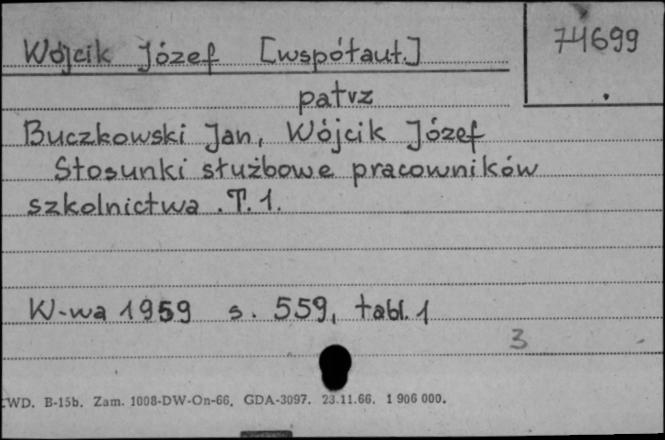 Wójcik Józef [współaut.]
74699
patrz
Buczkowski Jan, Wójcik Józef
Stosunki służbowe pracowników
szkolnictwa. T. 1.
W-wa 1959 s. 559, tabl. 1
3
CWD. B-15b. Zam. 1008-DW-On-66. GDA-3097. 23.11.66. 1 906 000.